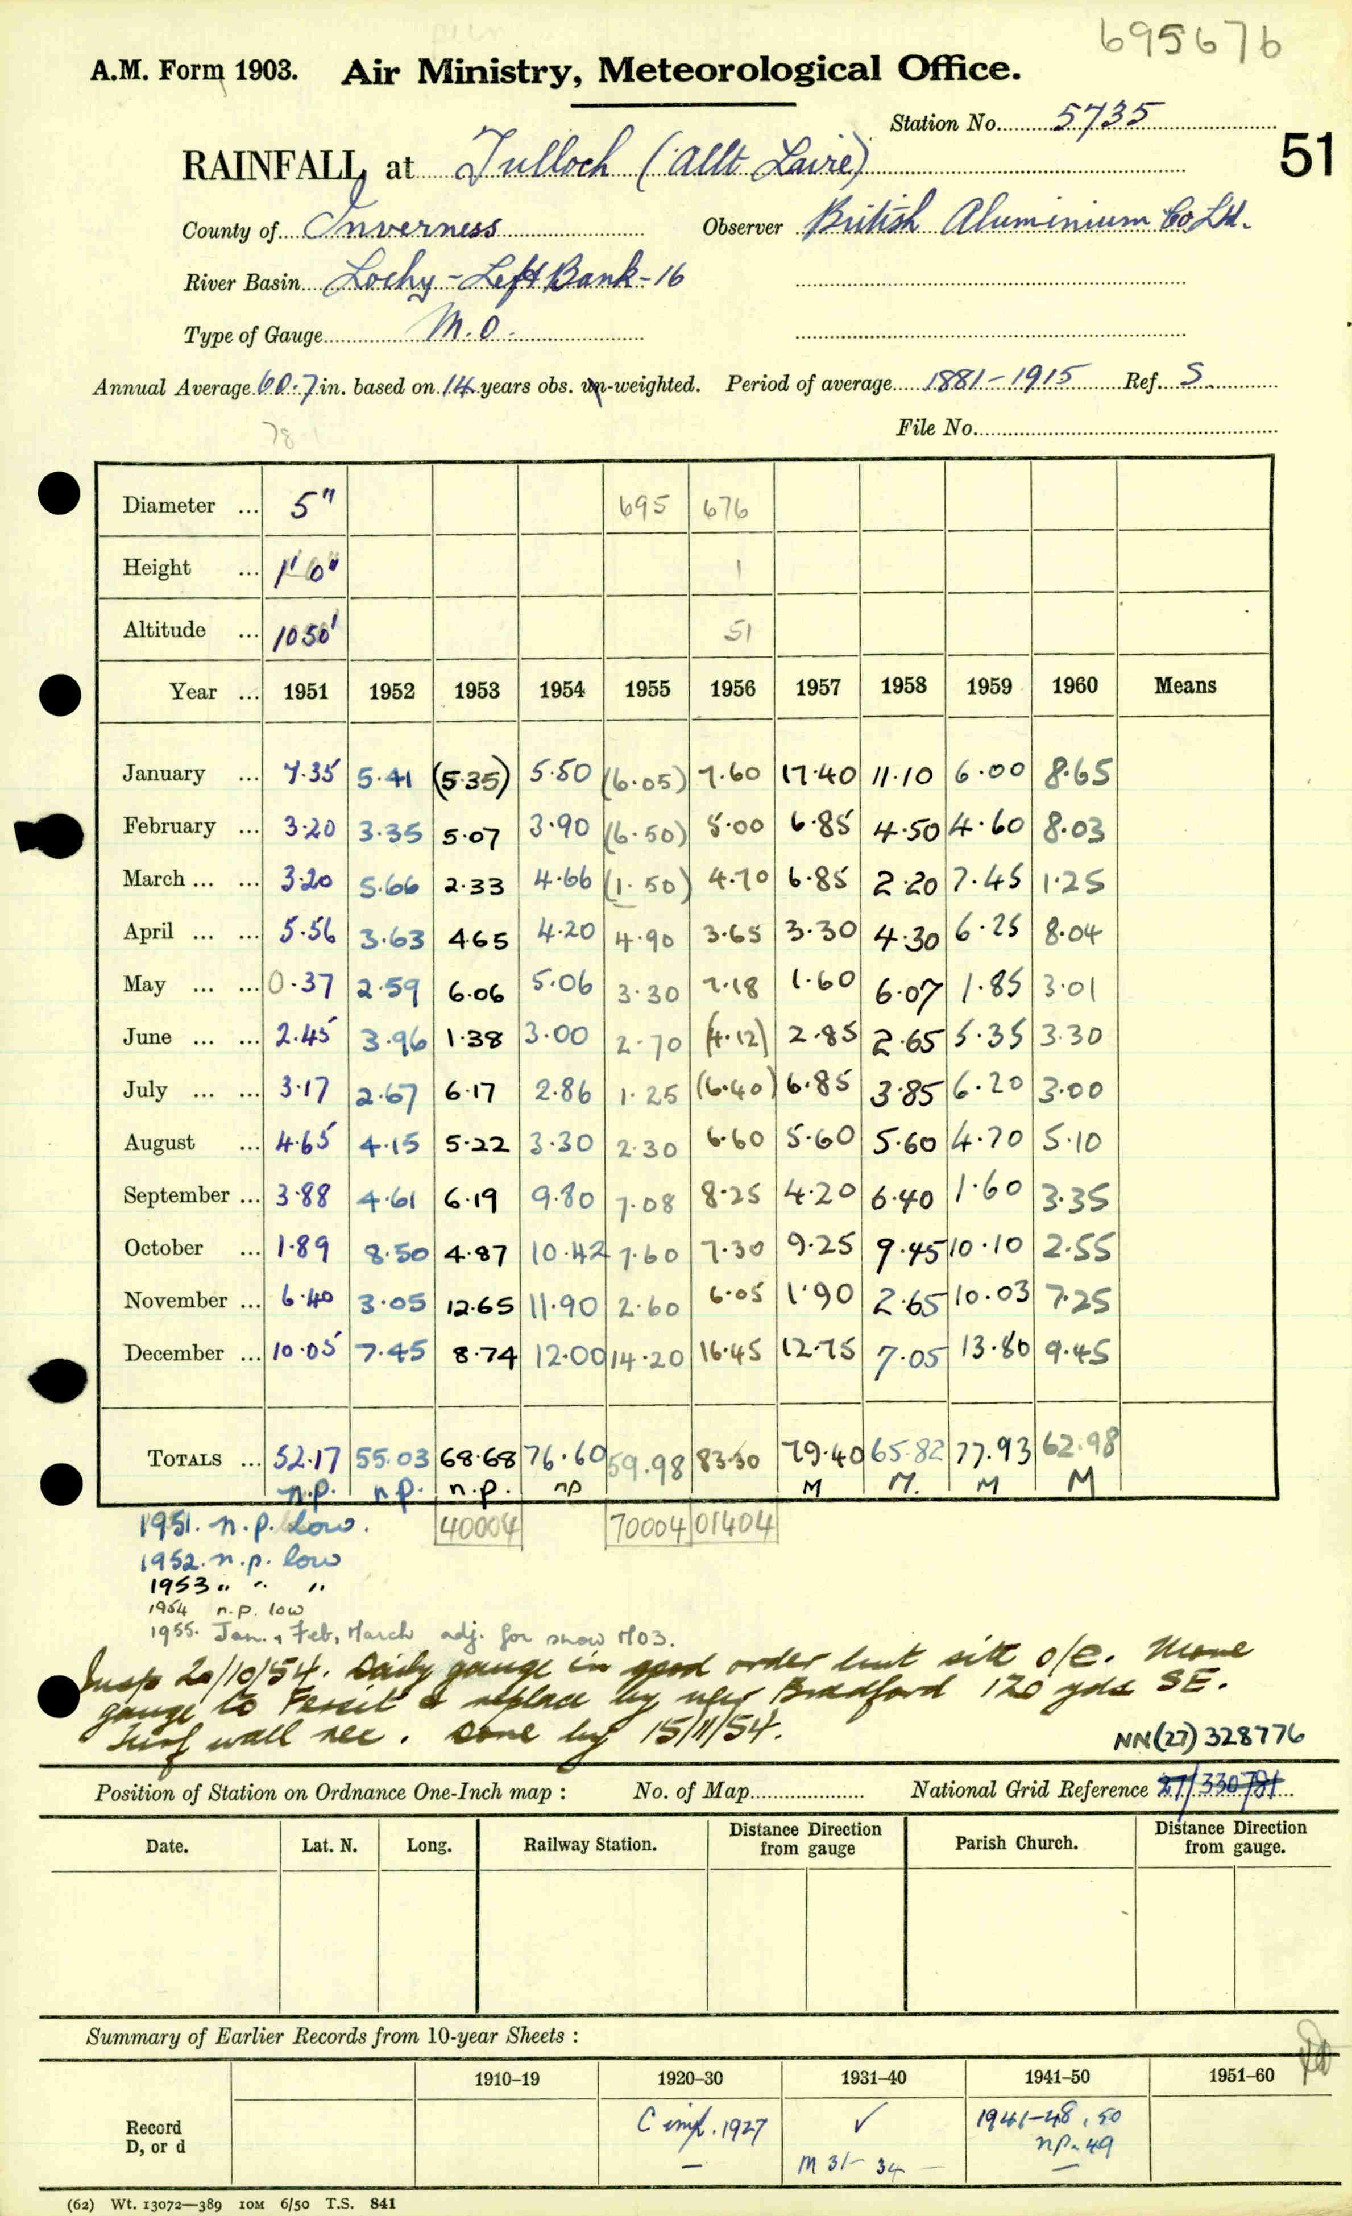 695676
A.M. Form 1903. Air Ministry, Meteorological Office.
Station No. 5735
51
RAINFALL at Tulloch (Allt Laire)
County of Inverness Observer British Aluminium Co Ltd.
River Basin Lochy - Left Bank - 16
Type of Gauge M.O.
Annual Average 60.7 in. based on 14 years obs. un-weighted. Period of average 1881-1915 Ref. S.
78
File No.
Diameter ... 5" 695 676
Height ... 1' 0" 1
Altitude ... 1050' 51
Year ... 1951 1952 1953 1954 1955 1956 1957 1958 1959 1960 Means
January ... 7.35 5.41 (5.35) 5.50 (6.05) 7.60 17.40 11.10 6.00 8.65
February ... 3.20 3.35 5.07 3.90 (6.50) 5.00 6.85 4.50 4.60 8.03
March ... ... 3.20 5.66 2.33 4.66 (1.50) 4.70 6.85 2.20 7.45 1.25
April ... ... 5.56 3.63 4.65 4.20 4.90 3.65 3.30 4.30 6.25 8.04
May ... ... 0.37 2.59 6.06 5.06 3.30 7.18 1.60 6.07 1.85 3.01
June ... ... 2.45 3.96 1.38 3.00 2.70 (4.12) 2.85 2.65 5.35 3.30
July ... ... 3.17 2.67 6.17 2.86 1.25 (6.40) 6.85 3.85 6.20 3.00
August ... 4.65 4.15 5.22 3.30 2.30 6.60 5.60 5.60 4.70 5.10
September ... 3.88 4.61 6.19 9.80 7.08 8.25 4.20 6.40 1.60 3.35
October ... 1.89 8.50 4.87 10.42 7.60 7.30 9.25 9.45 10.10 2.55
November ... 6.40 3.05 12.65 11.90 2.60 6.05 1.90 2.65 10.03 7.25
December ... 10.05 7.45 8.74 12.00 14.20 16.45 12.75 7.05 13.80 9.45
TOTALS ... 52.17 55.03 68.68 76.60 59.98 83.30 79.40 65.82 77.93 62.98
n.p. n.p. n.p. np M M. M M
1951. n.p. low. 40004 70004 01404
1952. n.p. low
1953 " " "
1954 n.p. low
1955. Jan., Feb, March adj. for snow M03.
Insp 20/10/54. Daily gauge in good order but site o/e. Move
gauge to Fersit & replace by new Bradford 120 yds SE.
Turf wall nec. Done by 15/11/54.
NN(27) 328776
Position of Station on Ordnance One-Inch map : No. of Map National Grid Reference 27/330781
Date. Lat. N. Long. Railway Station. Distance Direction from gauge Parish Church. Distance Direction from gauge.
Summary of Earlier Records from 10-year Sheets :
1910-19 1920-30 1931-40 1941-50 1951-60
Record D, or d C impf. 1927 ✓ 1941-48, 50
np. 49
— M 31-34 — —
(62) Wt. 13072—389 10M 6/50 T.S. 841